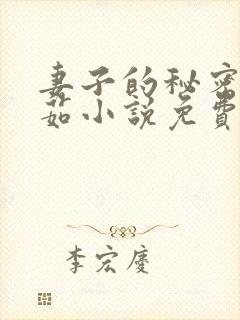 妻子的秘密
茹小說免費
李宏慶